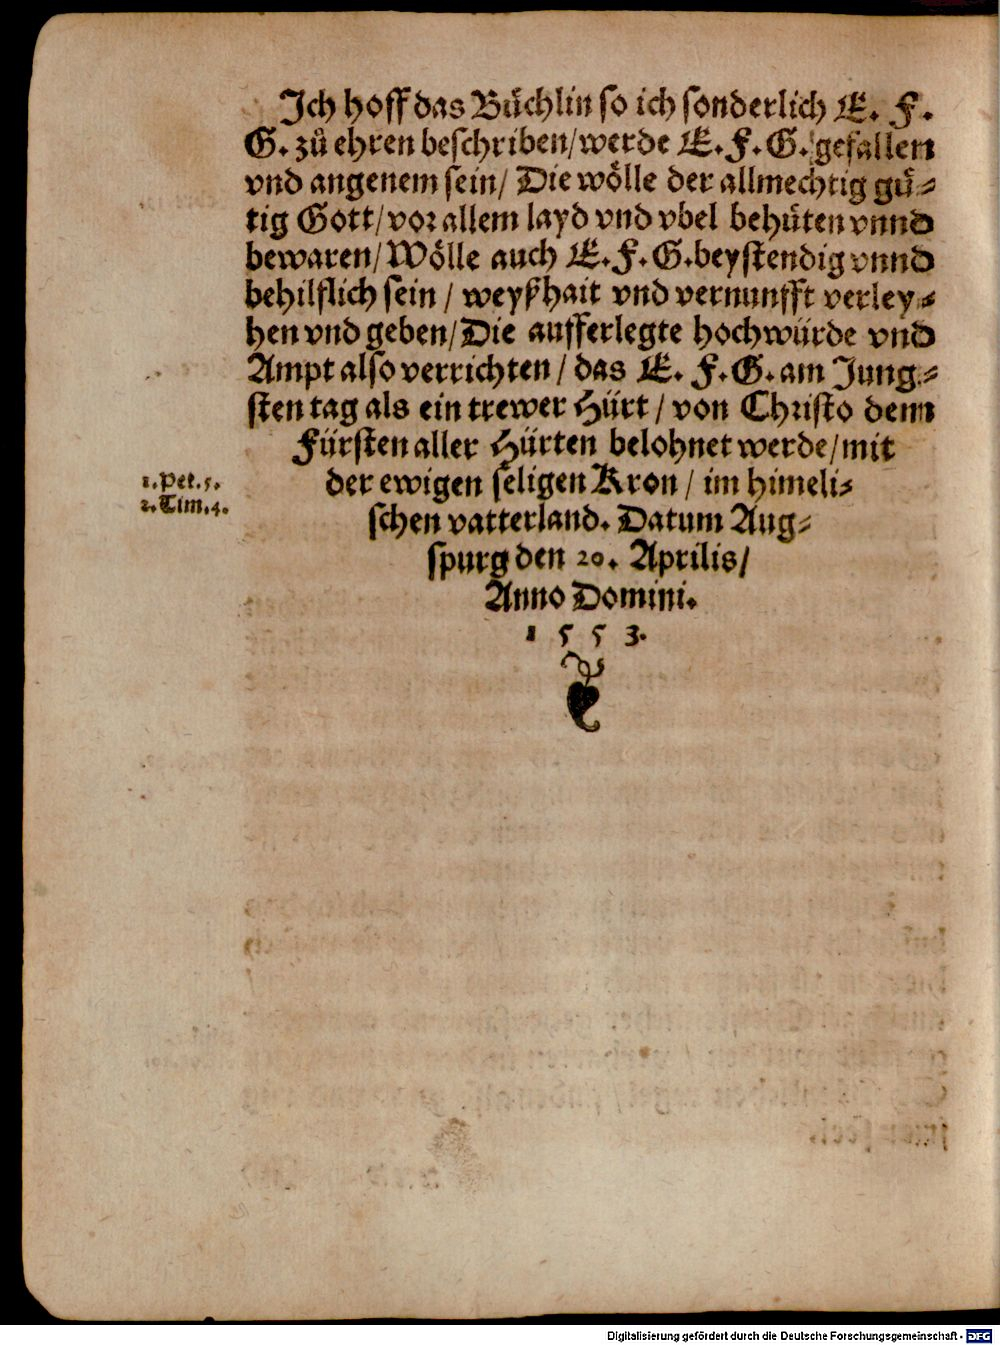 Ich hoff das Büchlin so ich sonderlich E. F.
G. zů ehren beschriben/ werde E. F. G. gefallen
vnd angenem sein/ Die wölle der allmechtig gü⸗
tig Gott/ vor allem layd vnd vbel behüten vnnd
bewaren/ Wölle auch E. F. G. beystendig vnnd
behilflich sein / weyßhait vnd vernunfft verley⸗
hen vnd geben/ Die aufferlegte hochwürde vnd
Ampt also verrichten / das E. F. G. am Jung⸗
sten tag als ein trewer Hürt / von Christo dem
Fürsten aller Hürten belohnet werde/ mit
1. Pet. 5.
2. Tim. 4.
der ewigen seligen Kron / im himeli⸗
schen vatterland. Datum Aug⸗
spurg den 20. Aprilis/
Anno Domini.
1 5 5 3.
Digitalisierung gefördert durch die Deutsche Forschungsgemeinschaft - DFG